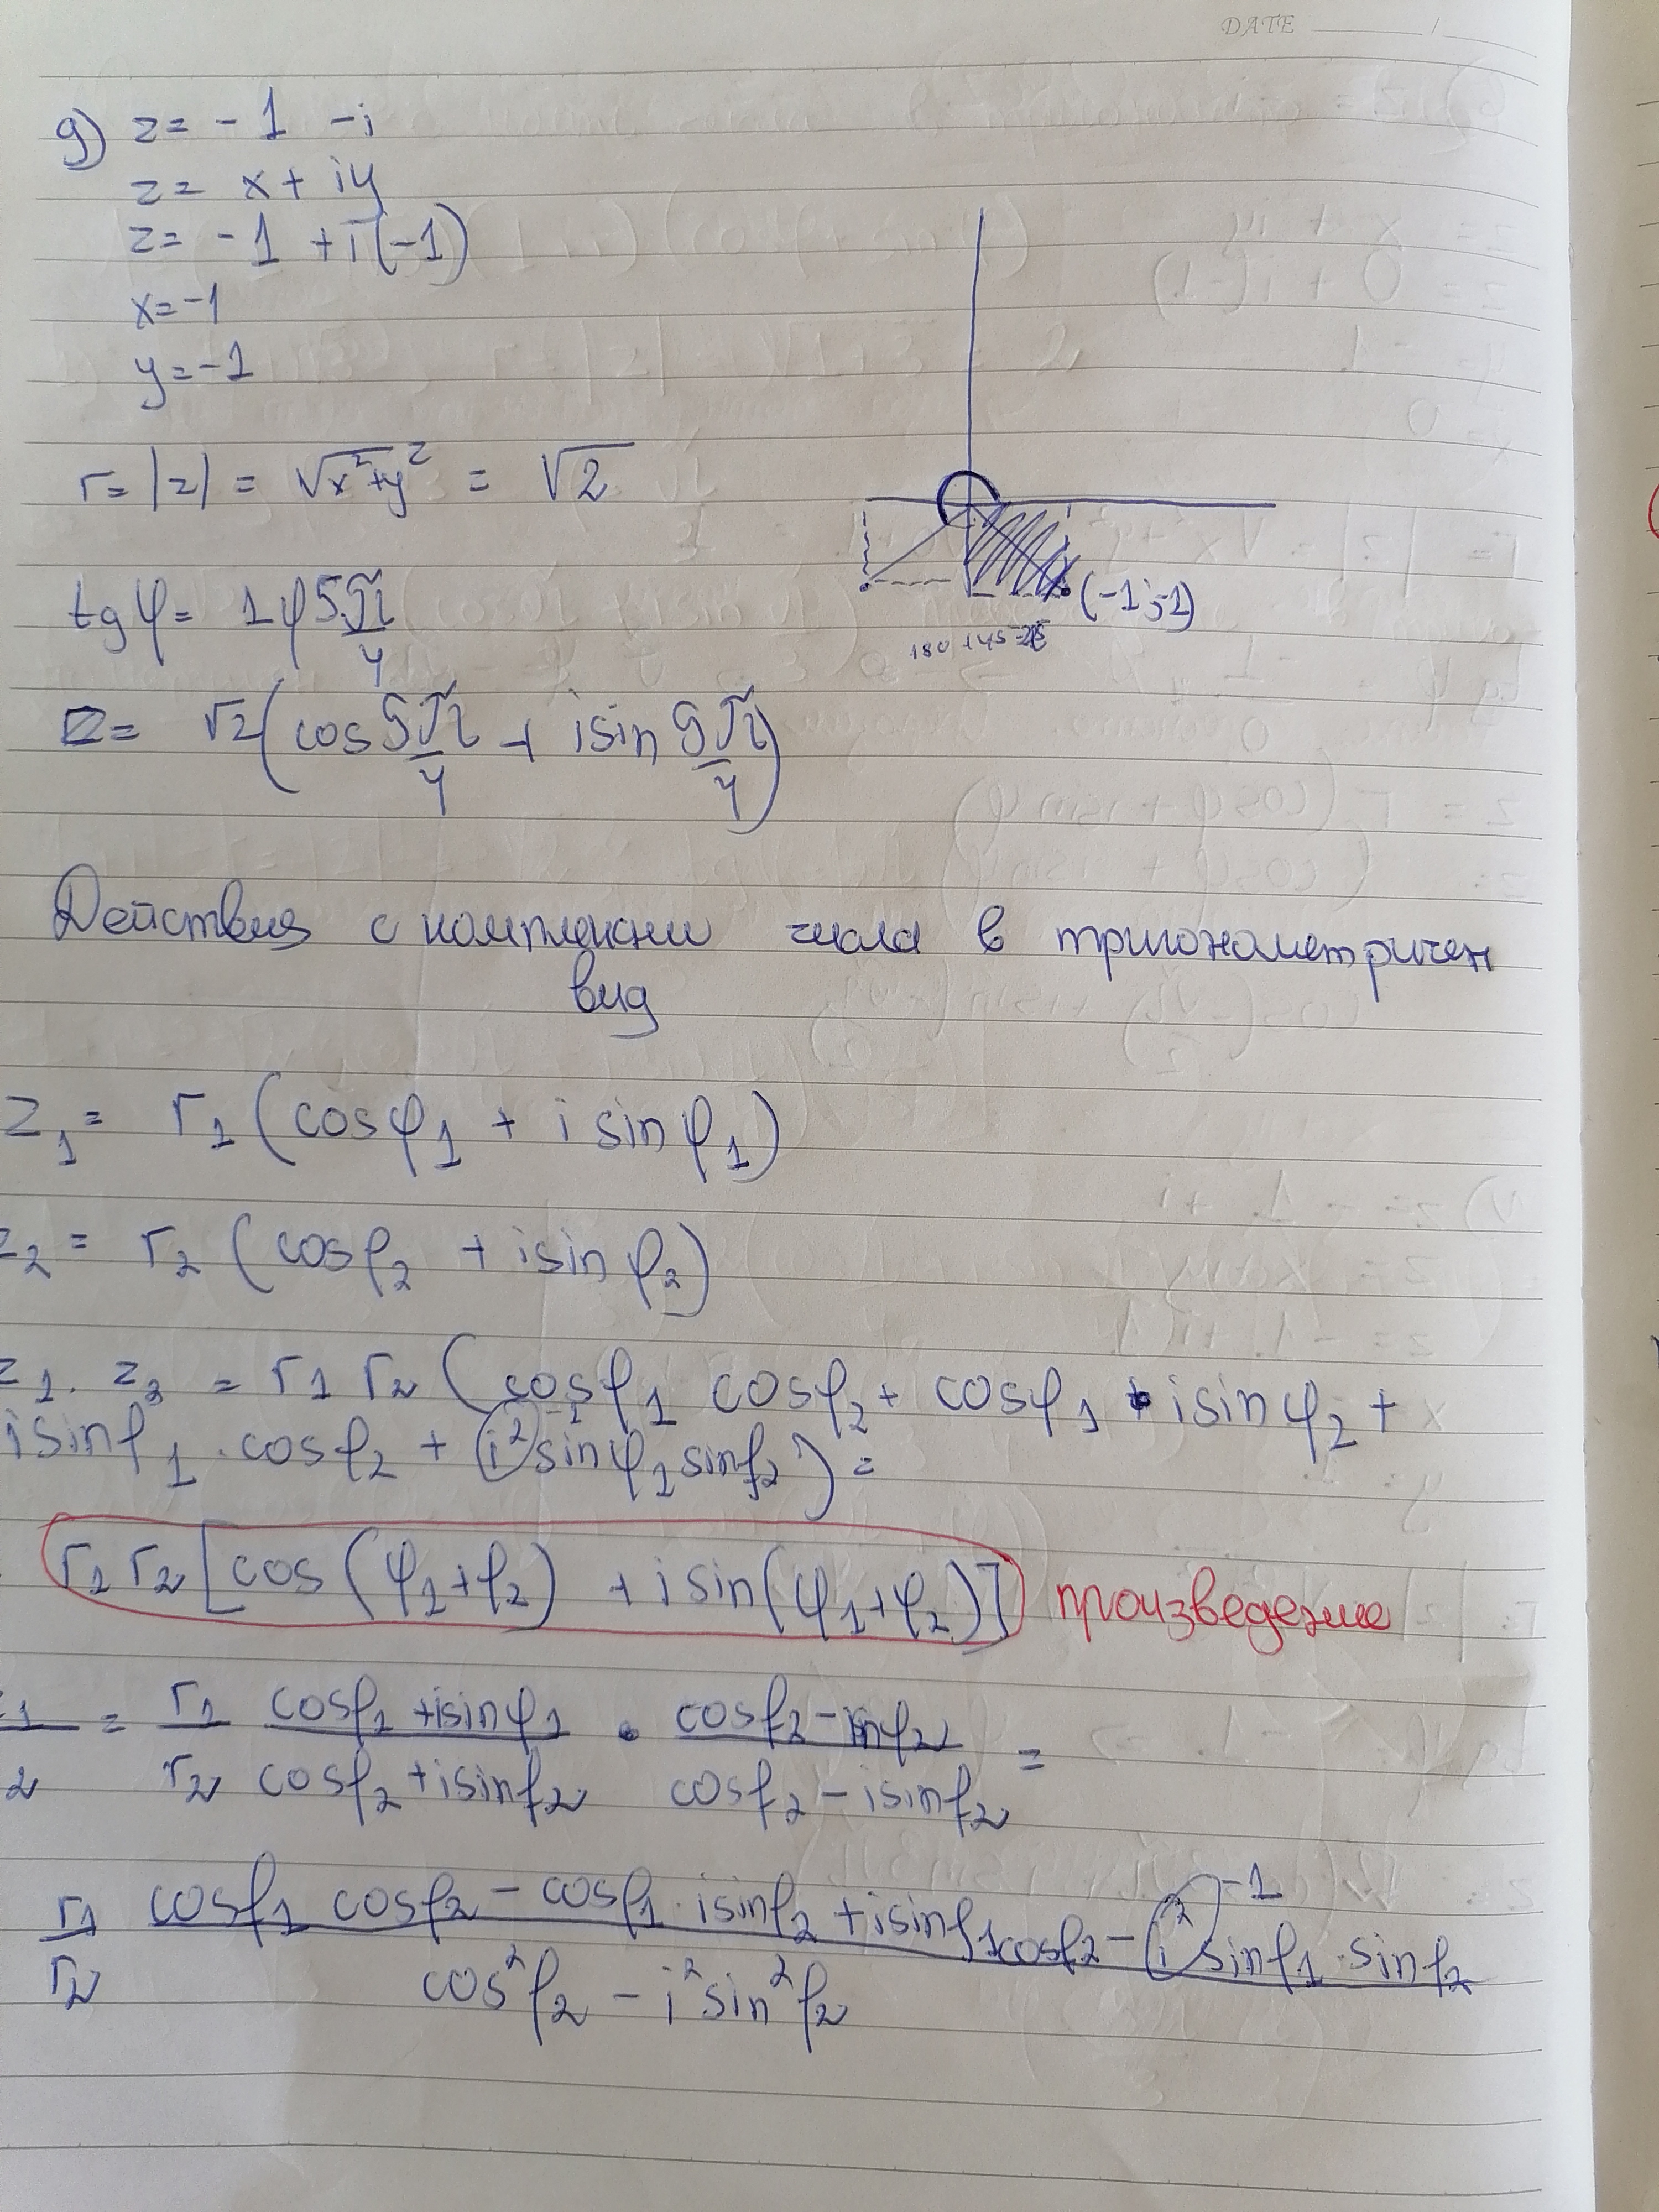 DATE ______ /
д) z = - 1 - i
z = x + iy
z = - 1 + i(-1)
x = -1
y = -1
r = |z| = √x²+y² = √2
tg φ = 1 φ 5π/4
(-1;-1)
180 + 45 =
z = √2 (cos 5π/4 + i sin 5π/4)
Действия с комплексни числа в тригонометричен
вид
z₁ = r₁ (cosφ₁ + i sinφ₁)
z₂ = r₂ (cosφ₂ + isin φ₂)
z₁ . z₂ = r₁ r₂ (cosφ₁ cosφ₂ + cosφ₁ . isinφ₂ +
isinφ₁ . cosφ₂ + i² sinφ₁ sinφ₂) =
-1
r₁ r₂ [cos (φ₁+φ₂) + i sin(φ₁+φ₂)] произведение
z₁/z₂ = r₁/r₂ (cosφ₁ + isinφ₁)/(cosφ₂ + isinφ₂) . (cosφ₂ - isinφ₂)/(cosφ₂ - isinφ₂) =
-1
r₁/r₂ (cosφ₁ cosφ₂ - cosφ₁ . isinφ₂ + isinφ₁cosφ₂ - i² sinφ₁ . sinφ₂)/(cos²φ₂ - i²sin²φ₂)